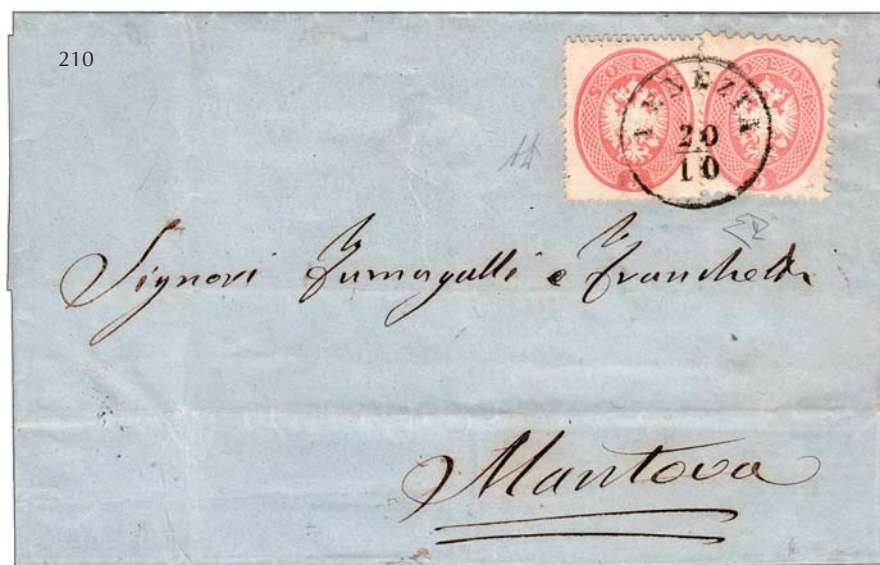 210
SOLDI
SOLDI
VENEZIA
20
10
Signori Fumagalli e Franchetti
Mantova